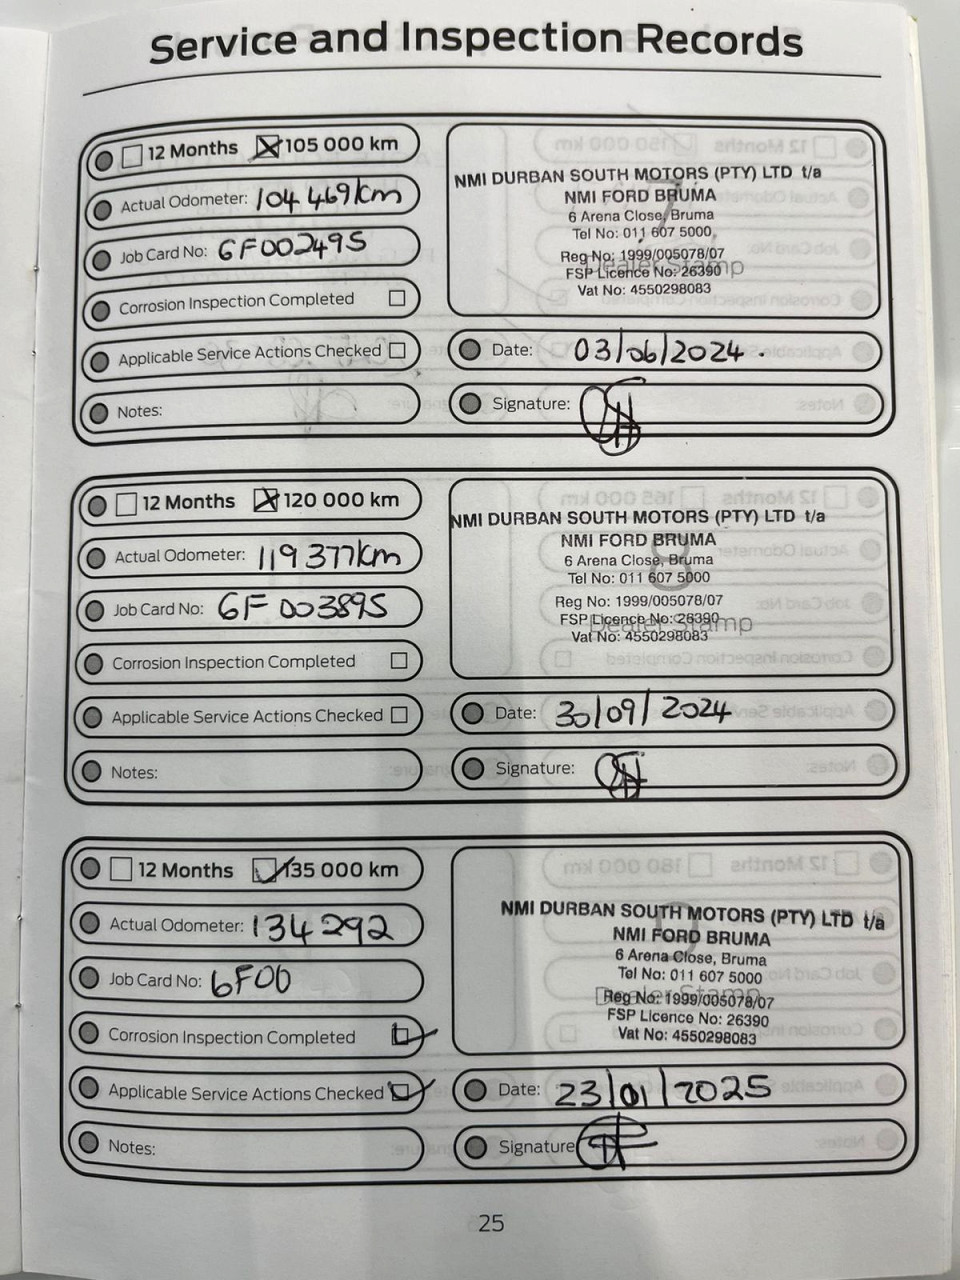 Service and Inspection Records
12 Months 105 000 km
Actual Odometer: 104 469km
Job Card No: 6F002495
Corrosion Inspection Completed
Applicable Service Actions Checked
Notes:
NMI DURBAN SOUTH MOTORS (PTY) LTD t/a
NMI FORD BRUMA
6 Arena Close, Bruma
Tel No: 011 607 5000
Reg No: 1999/005078/07
Dealer Stamp
FSP Licence No: 26390
Vat No: 4550298083
Date: 03/06/2024.
Signature:
12 Months 120 000 km
Actual Odometer: 119 377km
Job Card No: 6F003895
Corrosion Inspection Completed
Applicable Service Actions Checked
Notes:
NMI DURBAN SOUTH MOTORS (PTY) LTD t/a
NMI FORD BRUMA
6 Arena Close, Bruma
Tel No: 011 607 5000
Reg No: 1999/005078/07
FSP Licence No: 26390
Dealer Stamp
Vat No: 4550298083
Date: 30/09/2024
Signature:
12 Months 135 000 km
Actual Odometer: 134 292
Job Card No: 6F00
Corrosion Inspection Completed
Applicable Service Actions Checked
Notes:
NMI DURBAN SOUTH MOTORS (PTY) LTD t/a
NMI FORD BRUMA
6 Arena Close, Bruma
Tel No: 011 607 5000
Dealer Stamp
Reg No: 1999/005078/07
FSP Licence No: 26390
Vat No: 4550298083
Date: 23/01/2025
Signature
25